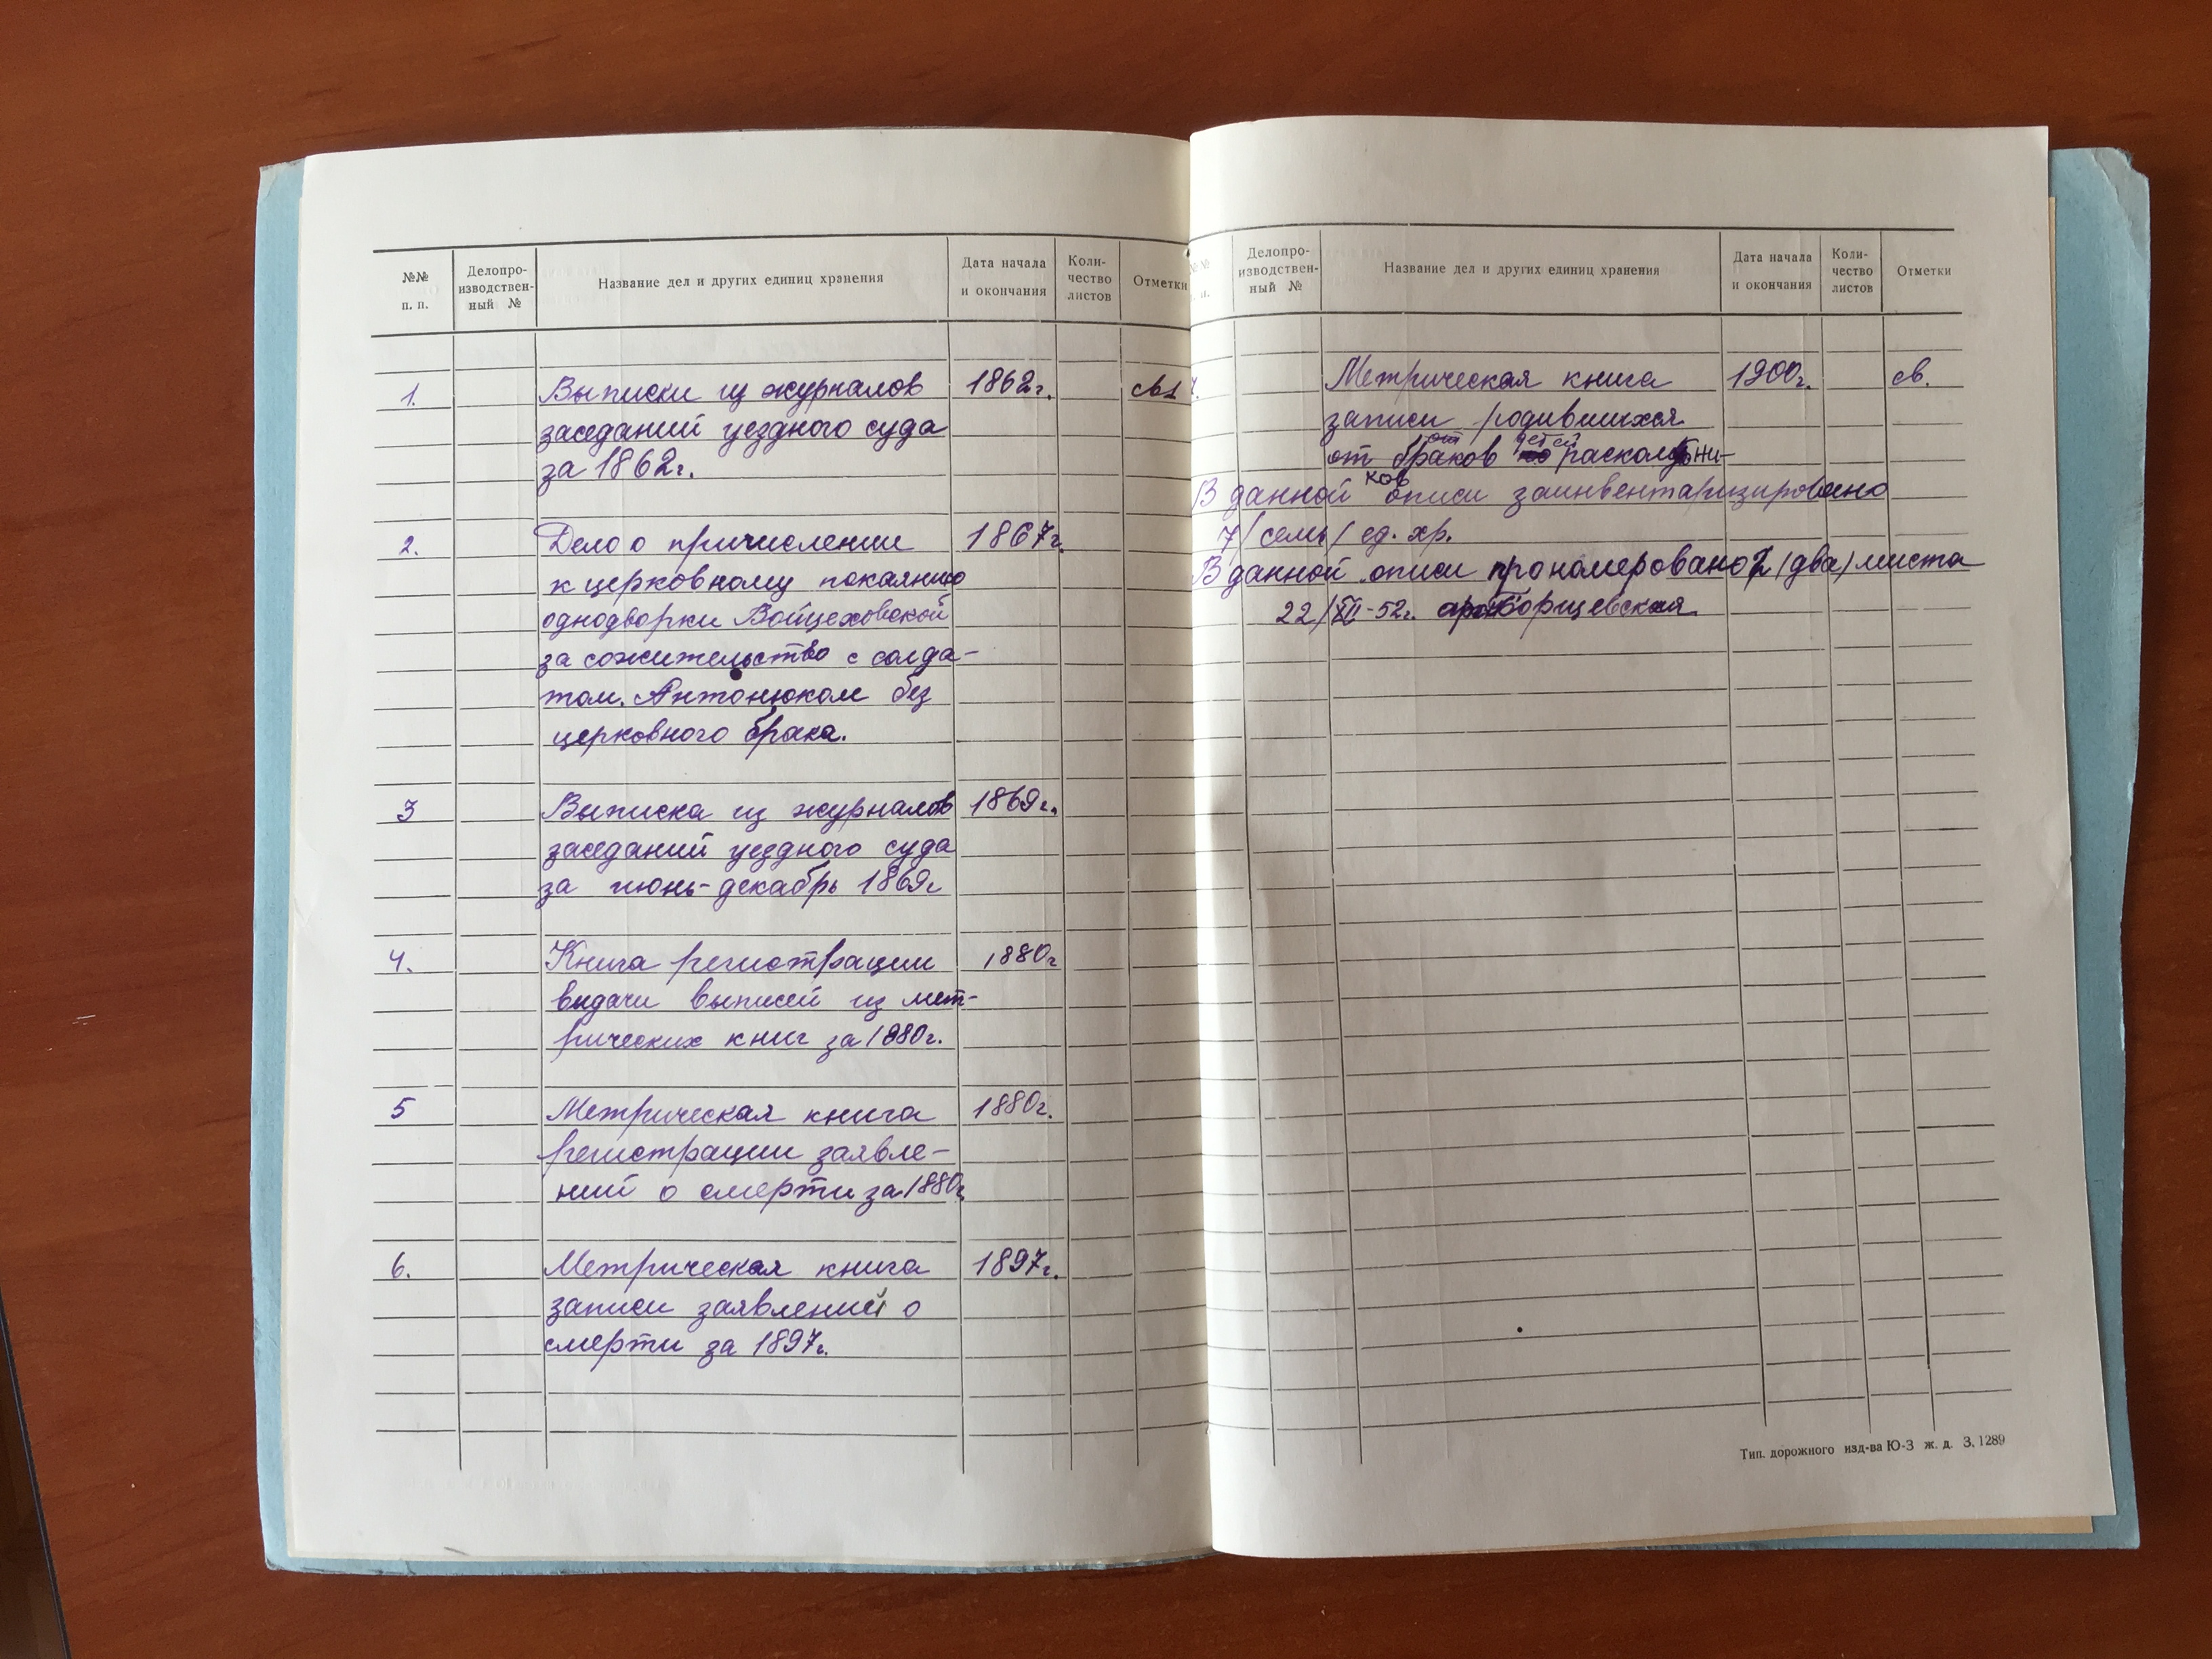 №№ п. п. Делопро-изводствен-ный № Название дел и других единиц хранения Дата начала и окончания Коли-чество листов Отметки
1. Выписки из журналов 1862г. св1
заседаний уездного суда
за 1862г.
2. Дело о причислении 1867г.
к церковному покаянию
однодворки Войцеховской
за сожительство с солда-
том. Антонюком без
церковного брака.
3 Выписка из журналов 1869г.
заседаний уездного суда
за июнь-декабрь 1869г
4. Книга регистрации 1880г
выдачи выписей из мет-
рических книг за 1880г.
5 Метрическая книга 1880г.
регистрации заявле-
ний о смерти за 1880г
6. Метрическая книга 1897г.
записи заявлений о
смерти за 1897г.
№№ п. п. Делопро-изводствен-ный № Название дел и других единиц хранения Дата начала и окончания Коли-чество листов Отметки
7. Метрическая книга 1900г. св.
записи родившихся
от детей
от браков раскольни-
ков
В данной описи заинвентаризировано
7/семь/ ед. хр.
В данной описи прономеровано 2 (два) листа
22/XII-52г. Борщевская
Тип. дорожного изд-ва Ю-З ж. д. З. 1289